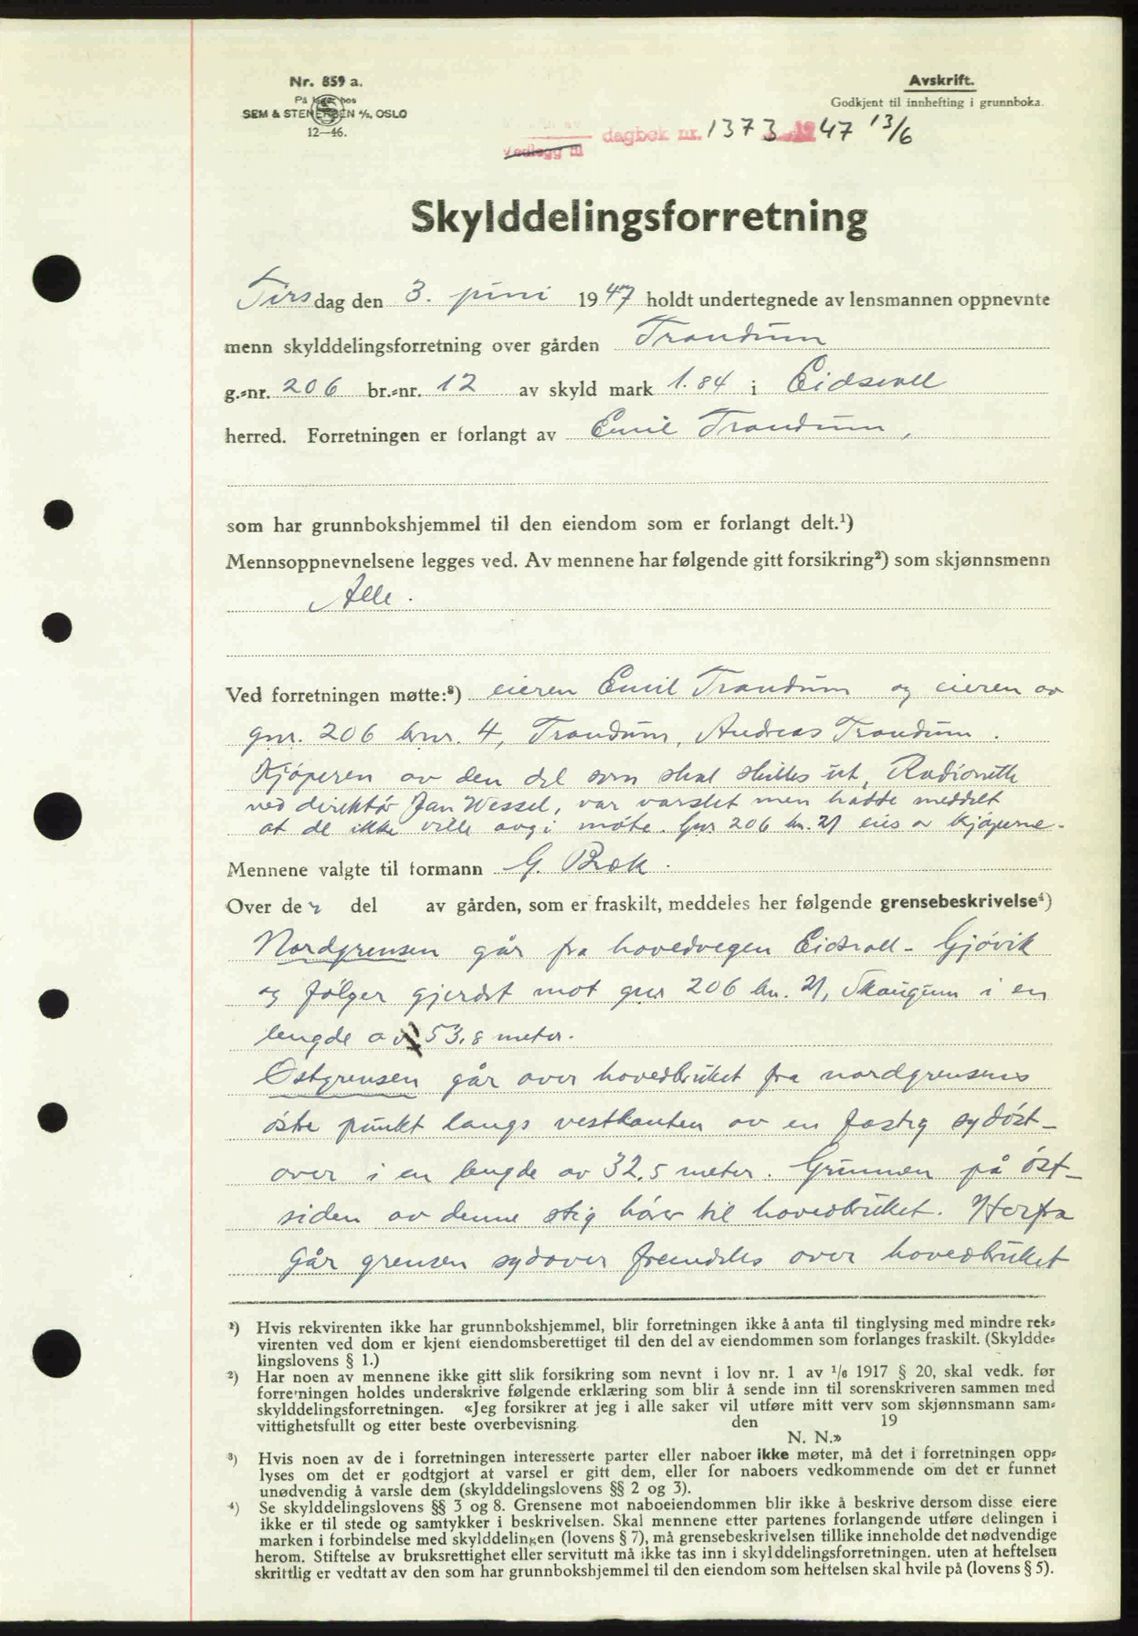 Nr. 859 a.
På lager hos
SEM & STENERSEN A/S, OSLO
12—46.
Avskrift.
Godkjent til innhefting i grunnboka.
Vedlegg til dagbok nr. 1373 1947 13/6
Skylddelingsforretning
Tirsdag den 3. juni 1947 holdt undertegnede av lensmannen oppnevnte
menn skylddelingsforretning over gården Trandum
g.-nr. 206 br.-nr. 12 av skyld mark 1.84 i Eidsvoll
herred. Forretningen er forlangt av Emil Trandum,
som har grunnbokshjemmel til den eiendom som er forlangt delt.¹)
Mennsoppnevnelsene legges ved. Av mennene har følgende gitt forsikring²) som skjønnsmenn
Alle.
Ved forretningen møtte:³) eieren Emil Trandum og eieren av
gnr. 206 brnr. 4, Trandum, Andreas Trandum.
Kjøperen av den del som skal skilles ut, Radionette
ved direktør Jan Wessel, var varslet men hadde meddelt
at de ikke ville avgi møte. Gnr 206 bn. 21 eies av kjøperne.
Mennene valgte til formann G. Bæk.
Over den del av gården, som er fraskilt, meddeles her følgende grensebeskrivelse⁴)
Nordgrensen går fra hovedvegen Eidsvoll - Gjøvik
og følger gjerdet mot gnr 206 bn. 21, Skaugum i en
lengde av 53,8 meter.
Østgrensen går over hovedbruket fra nordgrensens
østre punkt langs vestkanten av en fastig sydøst-
over i en lengde av 32,5 meter. Grunnen på øst-
siden av denne stig hører til hovedbruket. Herfra
går grensen sydover fremdeles over hovedbruket
¹) Hvis rekvirenten ikke har grunnbokshjemmel, blir forretningen ikke å anta til tinglysing med mindre rek-
virenten ved dom er kjent eiendomsberettiget til den del av eiendommen som forlanges fraskilt. (Skyldde-
lingslovens § 1.)
²) Har noen av mennene ikke gitt slik forsikring som nevnt i lov nr. 1 av 1/6 1917 § 20, skal vedk. før
forretningen holdes underskrive følgende erklæring som blir å sende inn til sorenskriveren sammen med
skylddelingsforretningen. «Jeg forsikrer at jeg i alle saker vil utføre mitt verv som skjønnsmann sam-
vittighetsfullt og etter beste overbevisning den 19
N. N.»
³) Hvis noen av de i forretningen interesserte parter eller naboer ikke møter, må det i forretningen opp-
lyses om det er godtgjort at varsel er gitt dem, eller for naboers vedkommende om det er funnet
unødvendig å varsle dem (skylddelingslovens §§ 2 og 3).
⁴) Se skylddelingslovens §§ 3 og 8. Grensene mot naboeiendommen blir ikke å beskrive dersom disse eiere
ikke er til stede og samtykker i beskrivelsen. Skal mennene etter partenes forlangende utføre delingen i
marken i forbindelse med skylddelingen (lovens § 7), må grensebeskrivelsen tillike inneholde det nødvendige
herom. Stiftelse av bruksrettighet eller servitutt må ikke tas inn i skylddelingsforretningen. uten at heftelsen
skriftlig er vedtatt av den som har grunnbokshjemmel til den eiendom som heftelsen skal hvile på (lovens § 5).